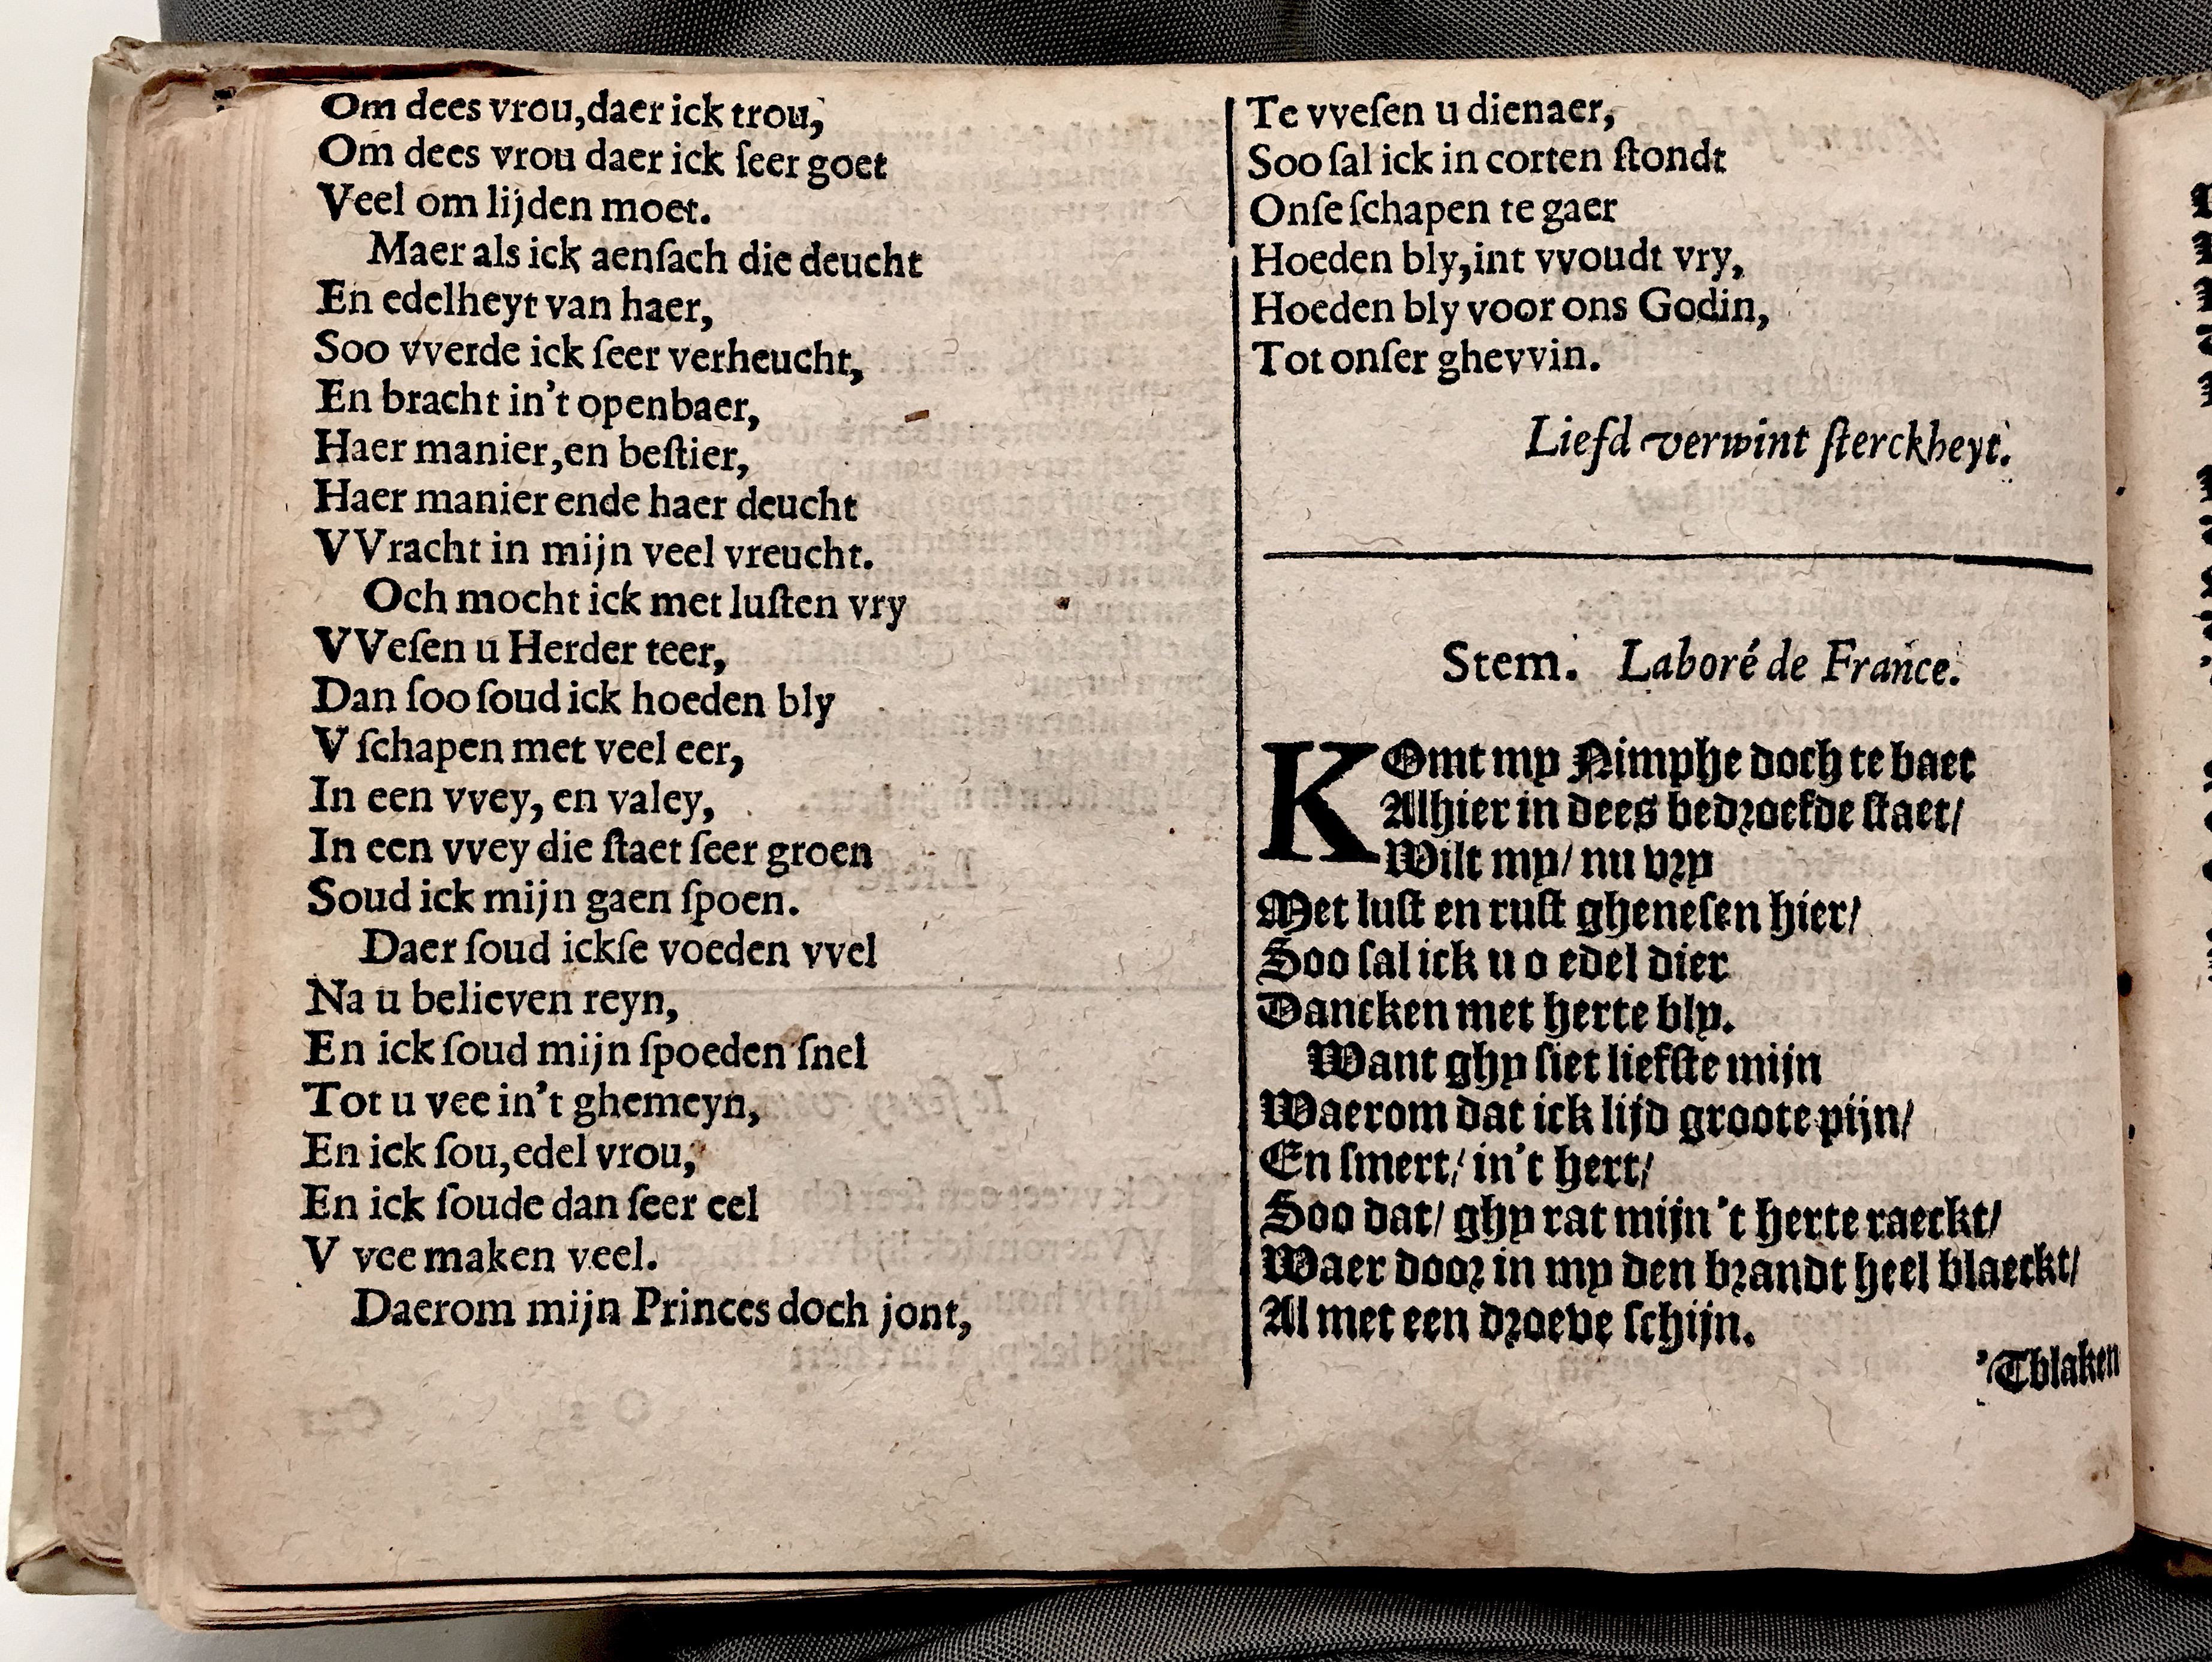 Om dees vrou,daer ick trou,
Om dees vrou daer ick ſeer goet
Veel om lijden moet.
Maer als ick aenſach die deucht
En edelheyt van haer,
Soo vverde ick ſeer verheucht,
En bracht in't openbaer,
Haer manier,en beſtier,
Haer manier ende haer deucht
VVracht in mijn veel vreucht.
Och mocht ick met luſten vry
VVeſen u Herder teer,
Dan ſoo ſoud ick hoeden bly
V ſchapen met veel eer,
In een vvey, en valey,
In een vvey die ſtaet ſeer groen
Soud ick mijn gaen ſpoen.
Daer ſoud ickſe voeden vvel
Na u believen reyn,
En ick ſoud mijn ſpoeden ſnel
Tot u vee in't ghemeyn,
En ick ſou,edel vrou,
En ick ſoude dan ſeer eel
V vee maken veel.
Daerom mijn Princes doch jont,
Te vveſen u dienaer,
Soo ſal ick in corten ſtondt
Onſe ſchapen te gaer
Hoeden bly,int vvoudt vry,
Hoeden bly voor ons Godin,
Tot onſer ghevvin.
Liefd verwint ſterckheyt.
Stem. Laboré de France.
KOmt my Nimphe doch te baet
Alhier in dees bedroefde ſtaet/
Wilt my/ nu vry
Met luſt en ruſt gheneſen hier/
Soo ſal ick u o edel dier
Dancken met herte bly.
Want ghy ſiet liefſte mijn
Waerom dat ick lijd groote pijn/
En ſmert/ in't hert/
Soo dat/ ghy rat mijn 't herte raeckt/
Waer door in my den brandt heel blaeckt/
Al met een droeve ſchijn.
'Tblaken